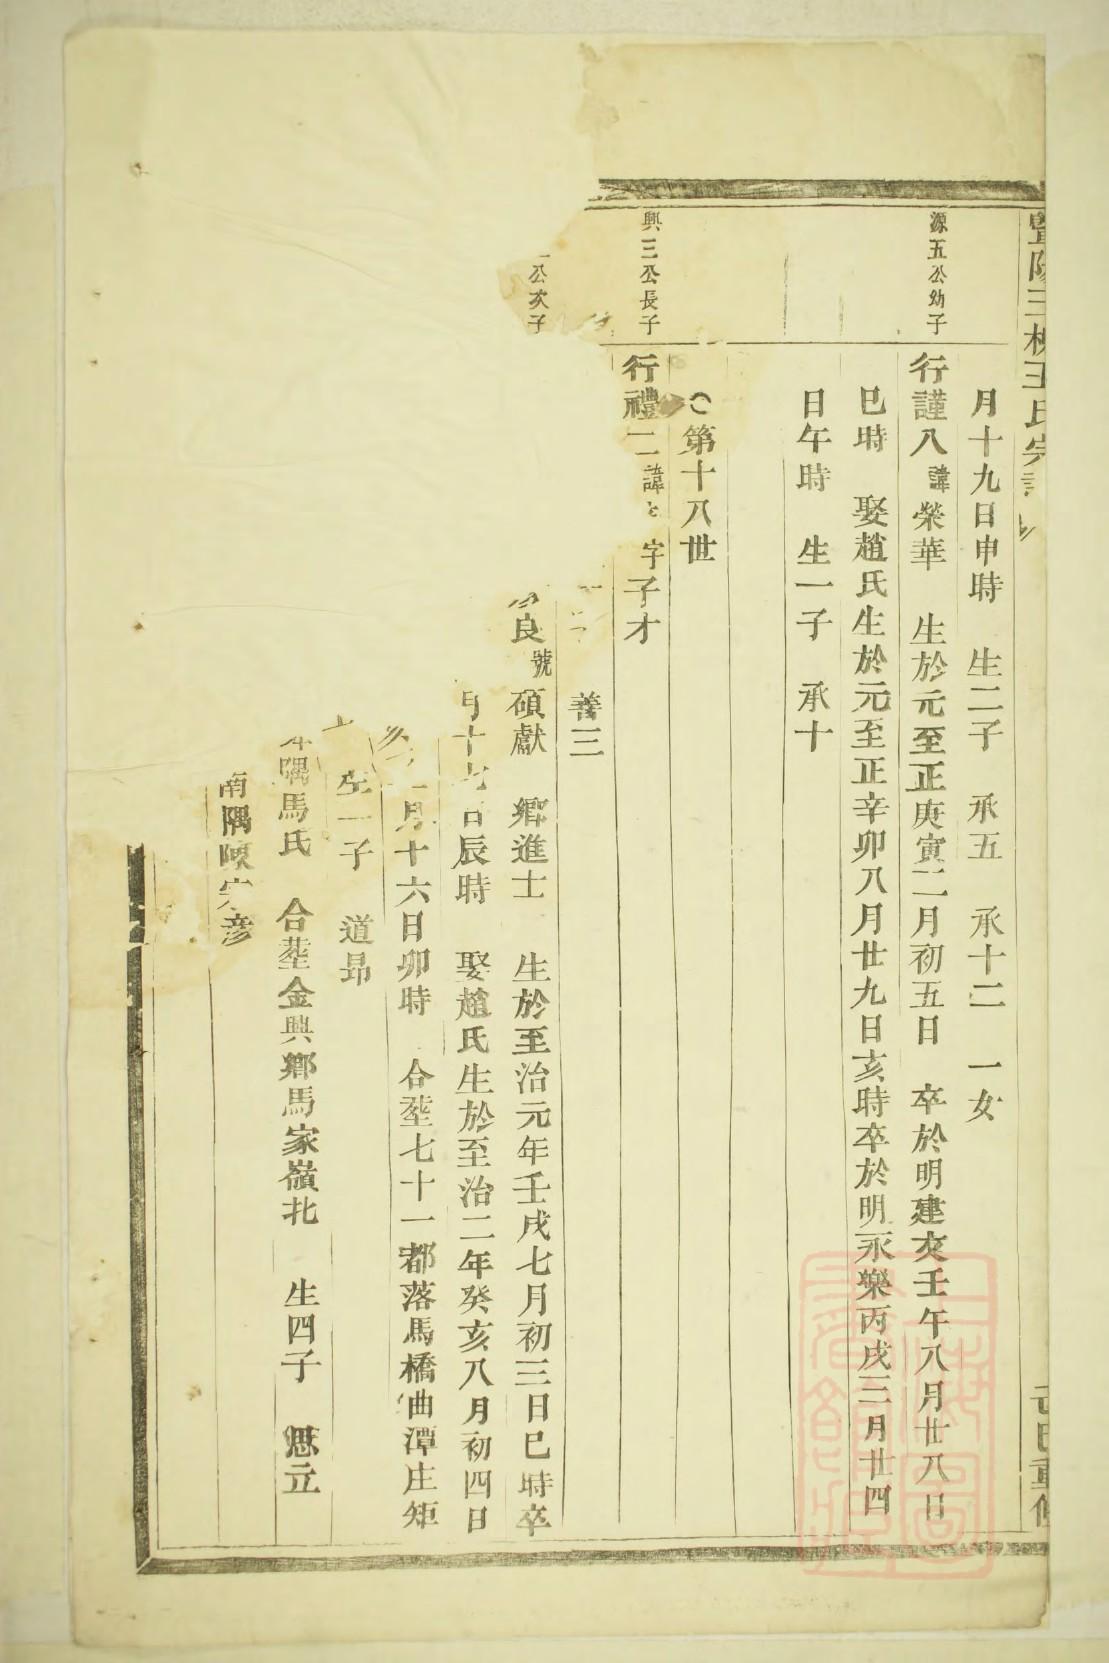 暨陽三槐王氏宗譜
己巳重修
月十九日申時 生二子 承五 承十二 一女
源五公幼子
行謹八諱榮華 生於元至正庚寅二月初五日 卒於明建文壬午八月廿八日
巳時 娶趙氏生於元至正辛卯八月廿九日亥時卒於明永樂丙戌三月廿四
日午時 生一子 承十
○第十八世
興三公長子
行禮二諱 字子才
善三
公次子
良號碩獻 鄉進士 生於至治元年壬戌七月初三日巳時卒
月十七日辰時 娶趙氏生於至治二年癸亥八月初四日
月十六日卯時 合塟七十一都落馬橋曲潭庄矩
生一子 道昻
隅馬氏 合塟金興鄉馬家嶺北 生四子 立
南隅陳宗彦